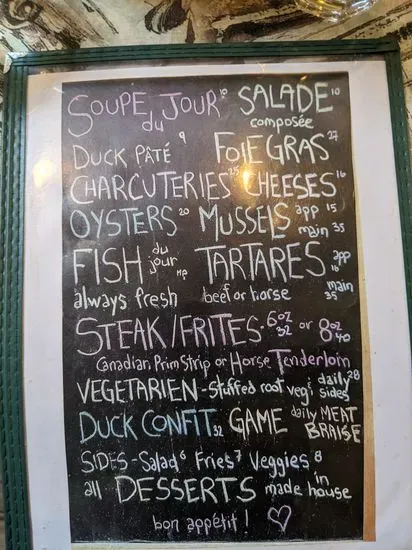 SOUPE du JOUR 10 SALADE 10
composée
DUCK PÂTÉ 9 FOIE GRAS 27
CHARCUTERIES 25 CHEESES 16
OYSTERS 20 MUSSELS app 15
main 35
FISH du jour MP TARTARES app 16
always fresh beef or horse main 35
STEAK/FRITES - 6oz 32 or 8oz 40
Canadian Prim Strip or Horse Tenderloin
VEGETARIEN - Stuffed roast vegi & daily sides 28
DUCK CONFIT 32 GAME daily MEAT BRAISE
SIDES - Salad 6 Fries 7 Veggies 8
all DESSERTS made in house
bon appétit ! ♡